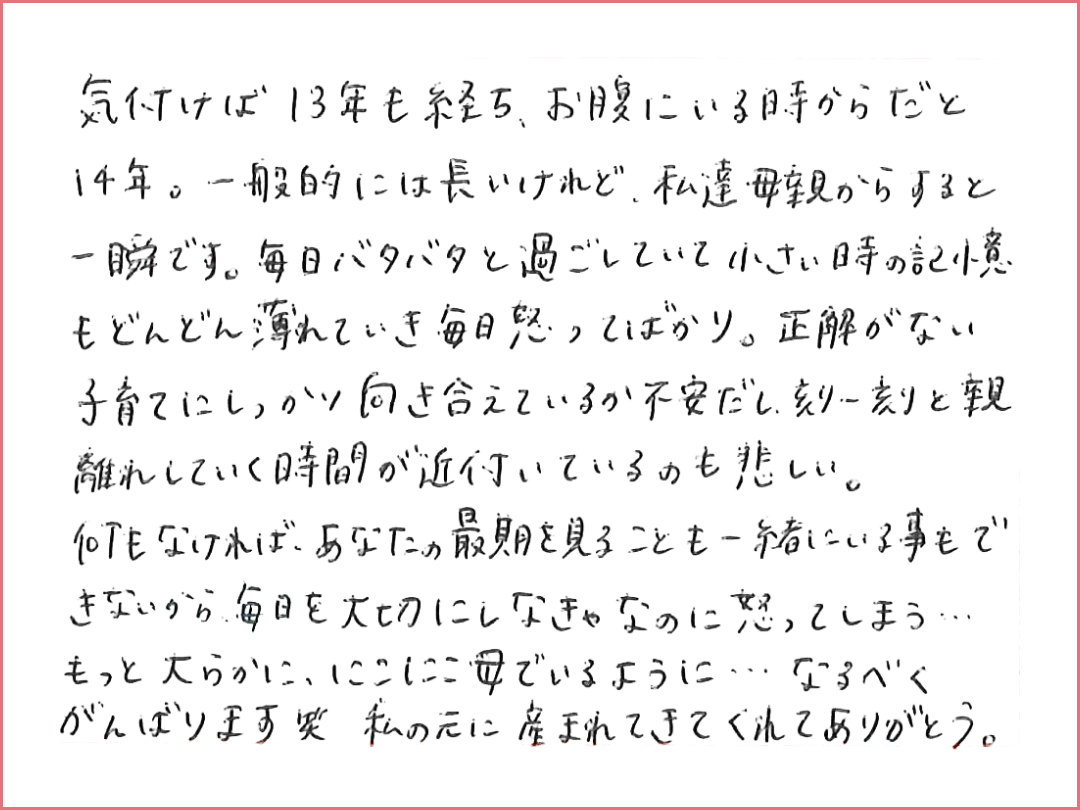 気付けば13年も経ち、お腹にいる時からだと
14年。一般的には長いけれど、私達母親からすると
一瞬です。毎日バタバタと過ごしていて小さい時の記憶
もどんどん薄れていき毎日怒ってばかり。正解がない
子育てにしっかり向き合えているか不安だし、刻一刻と親
離れしていく時間が近付いているのも悲しい。
何もなければ、あなたの最期を見ることも一緒にいる事もで
きないから、毎日を大切にしなきゃなのに怒ってしまう…
もっと大らかに、にこにこ母でいるように…なるべく
がんばります笑 私の元に産まれてきてくれてありがとう。